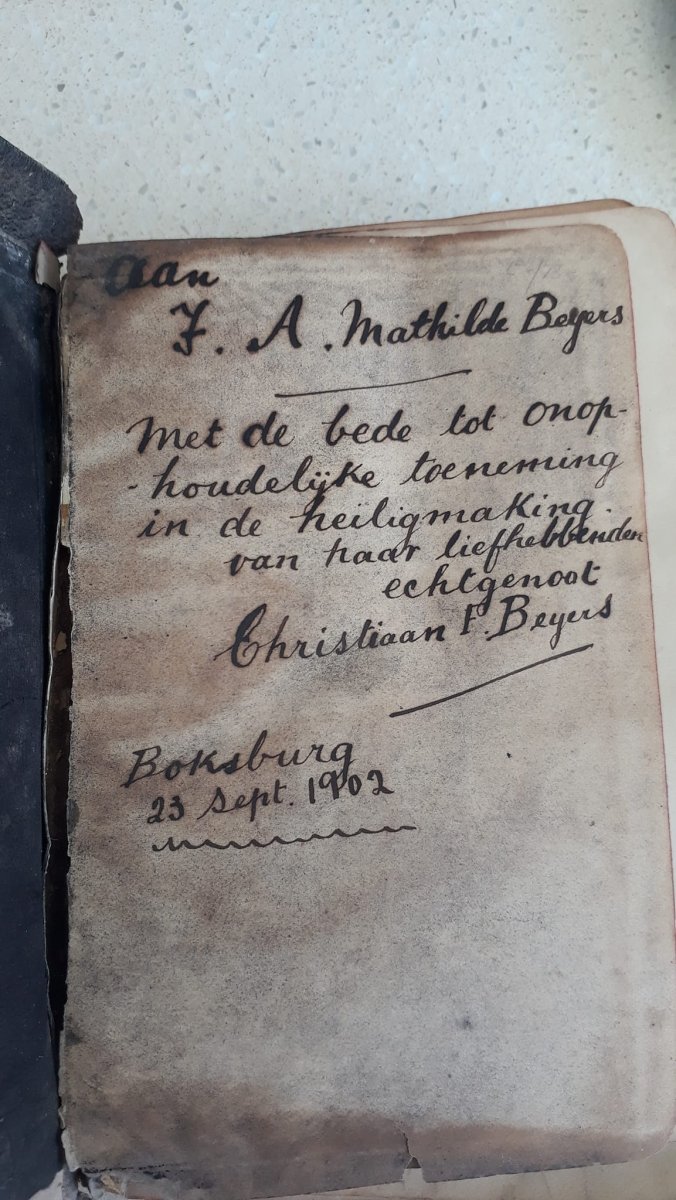 aan
J. A. Mathilde Beyers
Met de bede tot onop-
-houdelijke toeneming
in de heiligmaking.
van haar liefhebbenden
echtgenoot
Christiaan F. Beyers
Boksburg
23 Sept. 1902